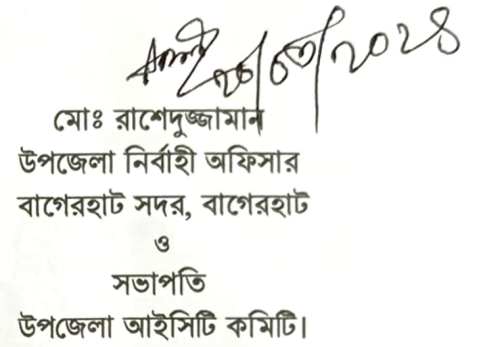 ২০/০৩/২০২৪
মোঃ রাশেদুজ্জামান
উপজেলা নির্বাহী অফিসার
বাগেরহাট সদর, বাগেরহাট
ও
সভাপতি
উপজেলা আইসিটি কমিটি।